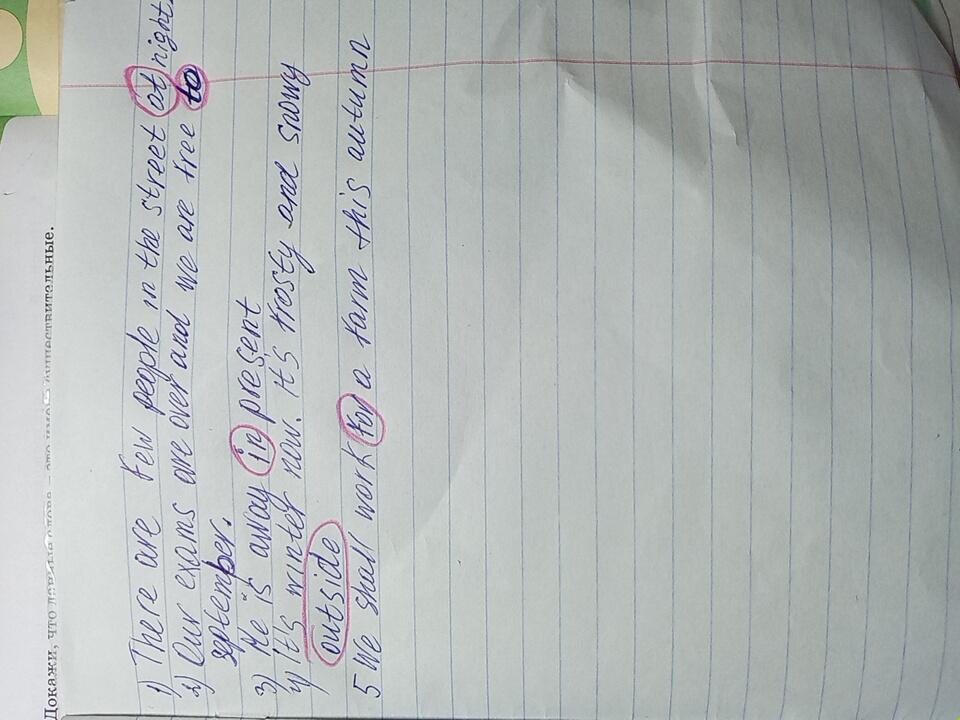 Докажи, что
1) There are few people in the street at night.
2) Our exams are over and we are free to
september.
3) He is away in present
4) It's winter now. It's frosty and snowy
outside
5 We shall work for a farm this autumn